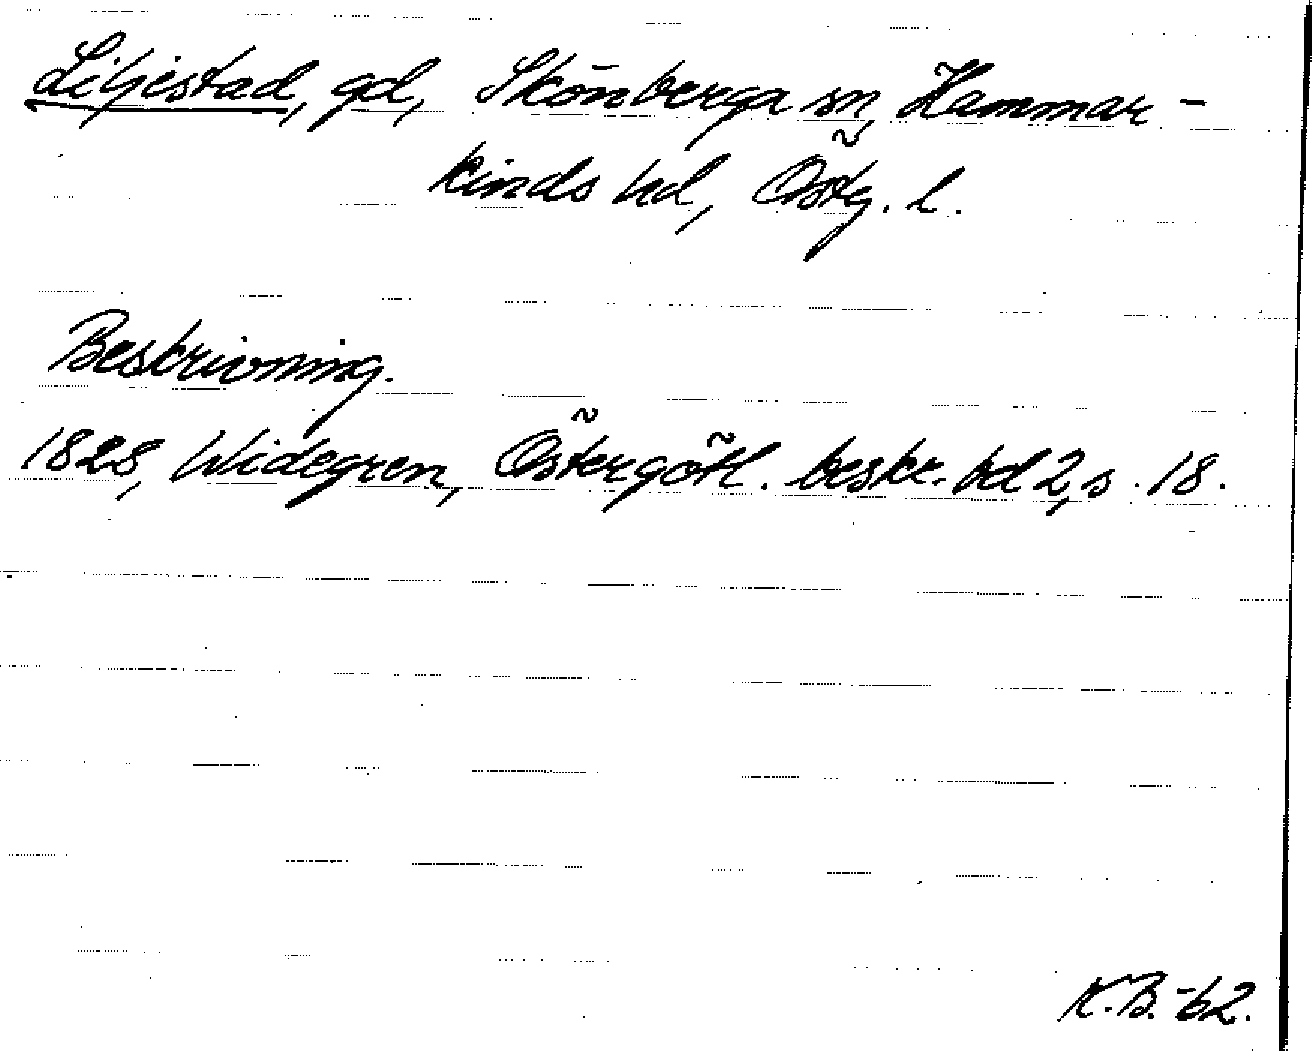 Liljestad, gd, Skönberga sn, Hammar-
kinds hd, Östg. l.
Beskrivning.
1828, Widegren, Östergötl. beskr. bd 2, s. 18.
K.B.-62.